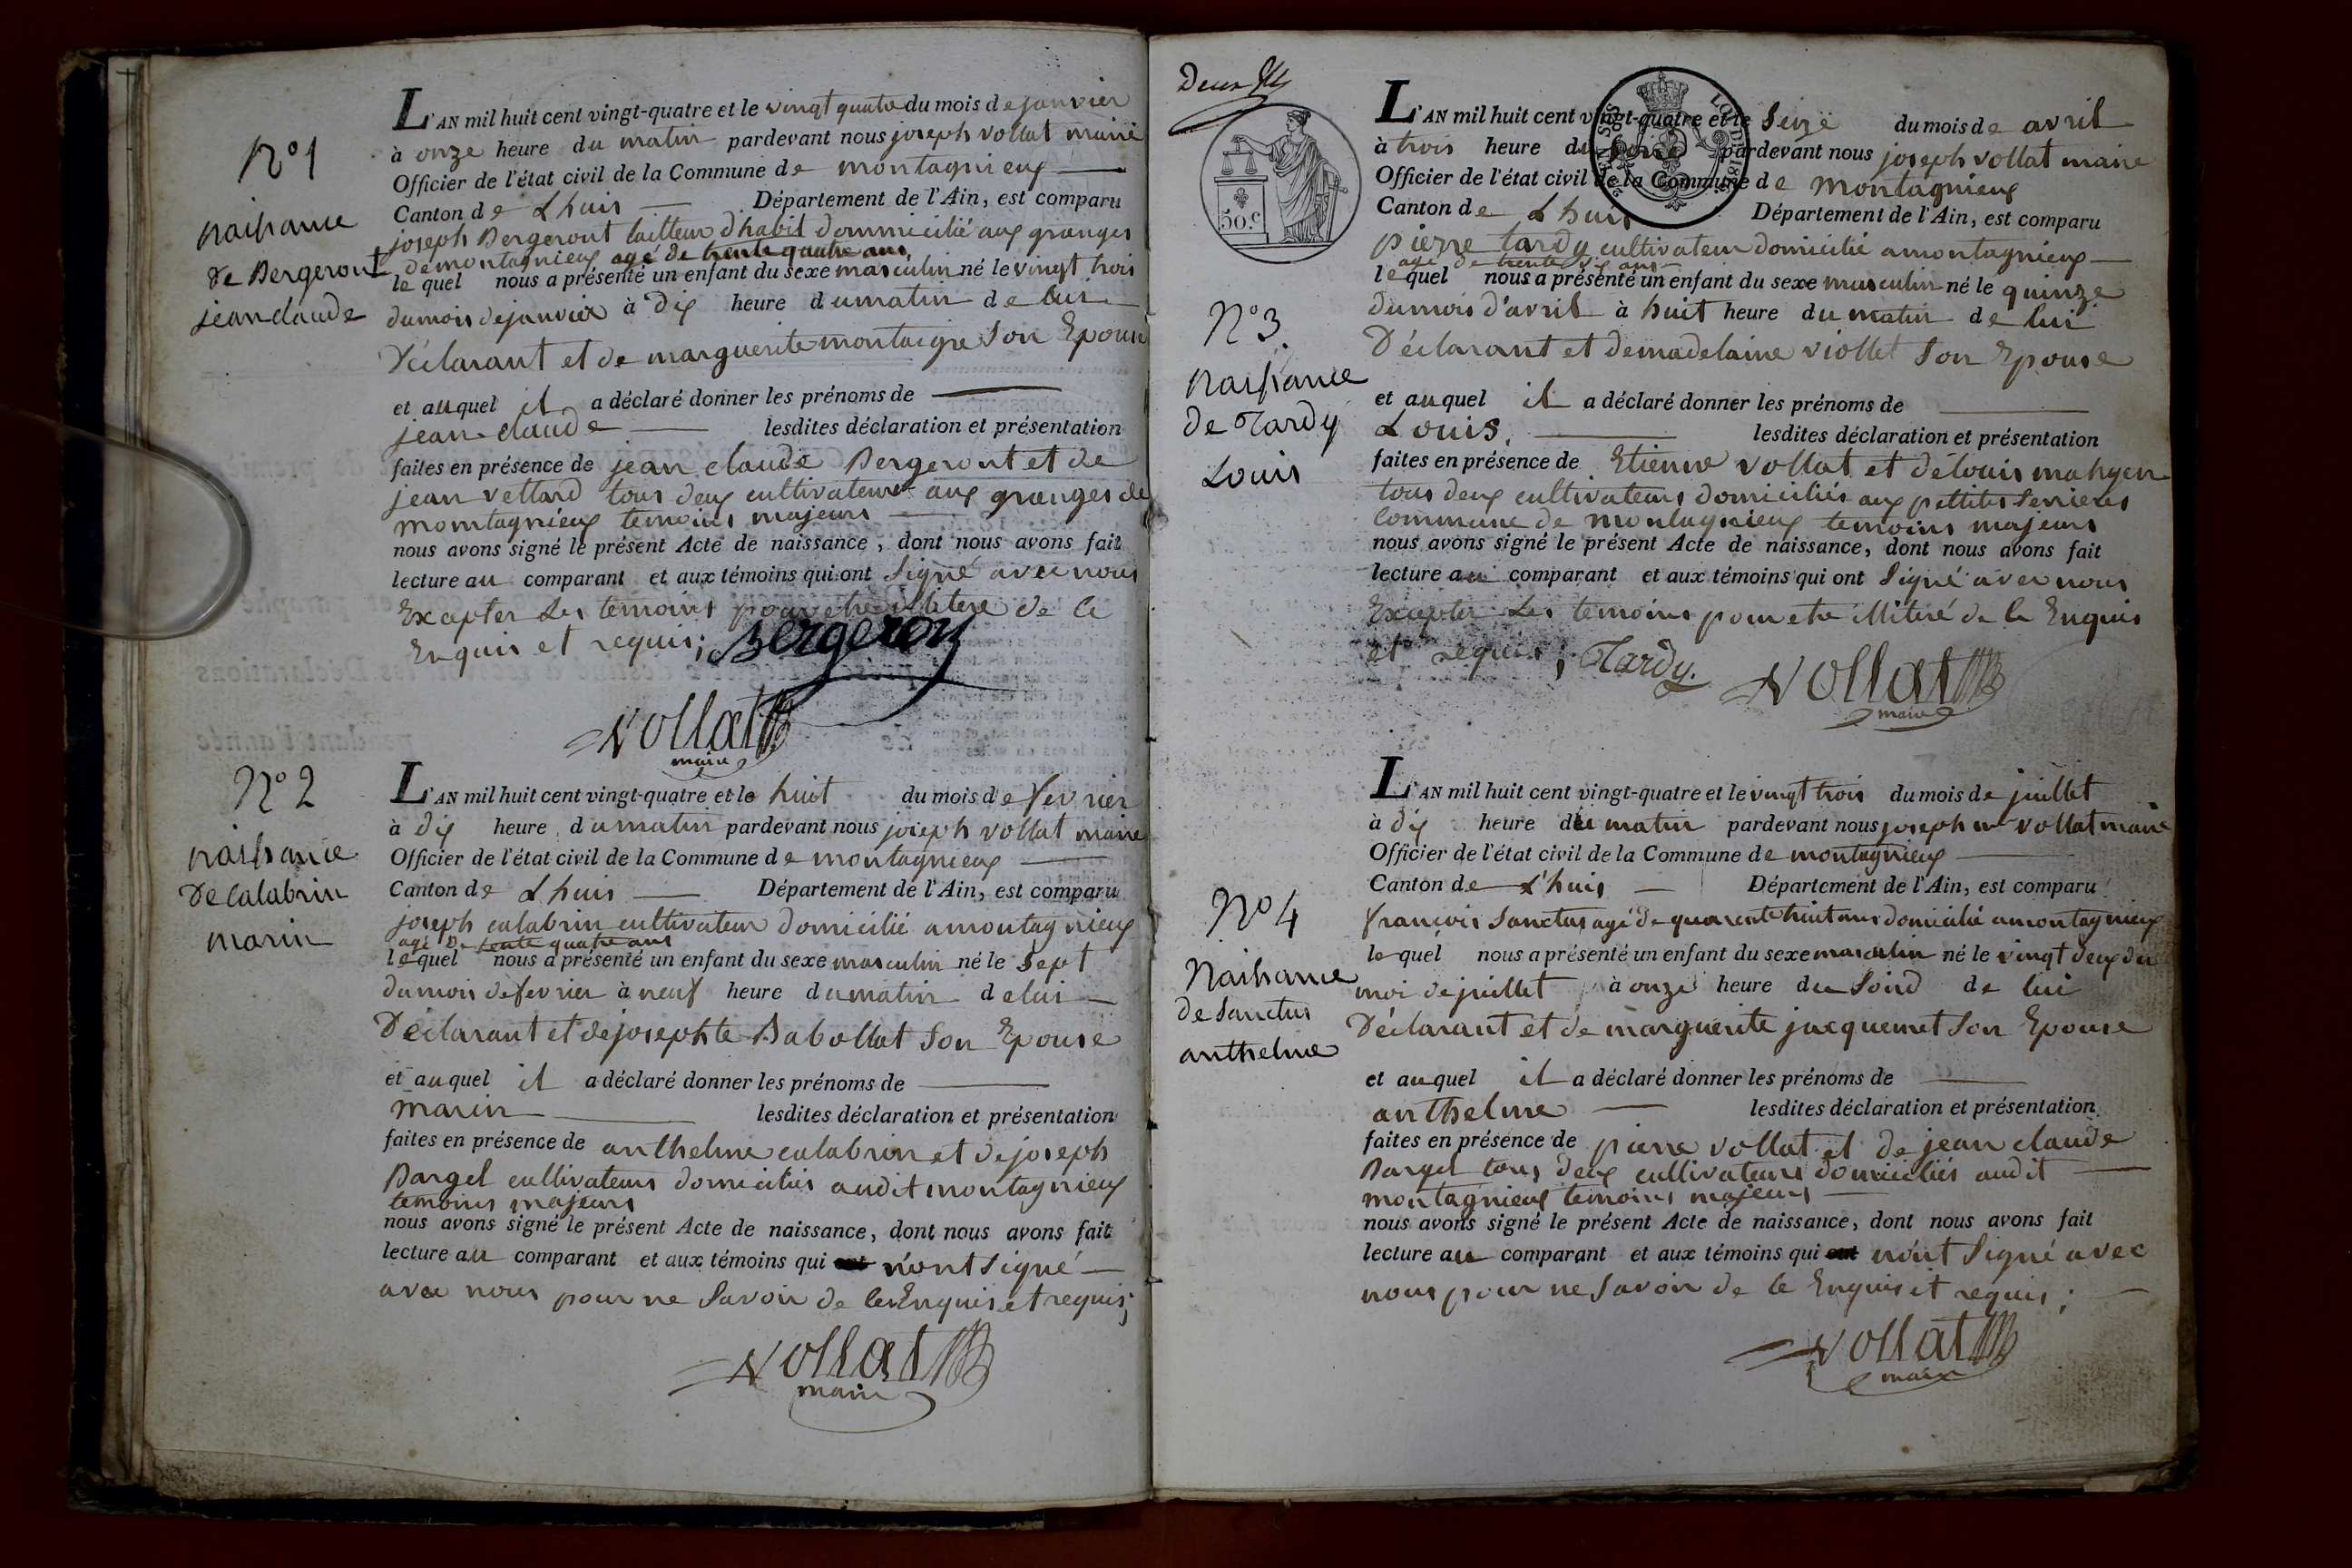 N° 1
naissance
de Bergeront
jean claude
L'AN mil huit cent vingt-quatre et le vingt quatre du mois de janvier
à onze heure du matin pardevant nous joseph vollat maire
Officier de l'état civil de la Commune de montagnieux
Canton de Lhuis Département de l'Ain, est comparu
joseph Bergeront tailleur d'habit dommicilié aux granges
de montagnieux agé de trente quatre ans
lequel nous a présenté un enfant du sexe masculin né le vingt trois
du mois de janvier à dix heure du matin de lui
Déclarant et de marguerite montaigre son Epouse
et auquel il a déclaré donner les prénoms de
jean claude lesdites déclaration et présentation
faites en présence de jean claude Bergeront et de
jean vettard tous deux cultivateurs aux granges de
montagnieux temoins majeurs
nous avons signé le présent Acte de naissance, dont nous avons fait
lecture au comparant et aux témoins qui ont signé avec nous
Excepter les temoins pour etre illitere de ce
Enquis et requis; Bergeron
vollat
maire
N° 2
naissance
de calabrin
marin
L'AN mil huit cent vingt-quatre et le huit du mois de fevrier
à dix heure du matin pardevant nous joseph vollat maire
Officier de l'état civil de la Commune de montagnieux
Canton de Lhuis Département de l'Ain, est comparu
joseph calabrin cultivateur domicilié a montagnieux
agé de trente quatre ans
lequel nous a présenté un enfant du sexe masculin né le sept
du mois de fevrier à neuf heure du matin de lui
Déclarant et de josephte Babollat son Epouse
et auquel il a déclaré donner les prénoms de
marin lesdites déclaration et présentation
faites en présence de anthelme calabrin et de joseph
Dargel cultivateurs domiciliés audit montagnieux
temoins majeurs
nous avons signé le présent Acte de naissance, dont nous avons fait
lecture au comparant et aux témoins qui n'ont signé
avec nous pour ne savoir de ce Enquis et requis;
vollat
maire
Deux
50 c.
N° 3
naissance
de Tardy
Louis
L'AN mil huit cent vingt-quatre et le seize du mois de avril
à trois heure du pardevant nous joseph vollat maire
Officier de l'état civil de la Commune de montagnieux
Canton de Lhuis Département de l'Ain, est comparu
pierre tardy cultivateur domicilié a montagnieux
agé de trente six ans
lequel nous a présenté un enfant du sexe masculin né le quinze
du mois d'avril à huit heure du matin de lui
Déclarant et de madelaine viollet son Epouse
et auquel il a déclaré donner les prénoms de
Louis, lesdites déclaration et présentation
faites en présence de Etienne vollat et de louis
tous deux cultivateurs domiciliés aux pettites serrieres
commune de montagnieux temoins majeurs
nous avons signé le présent Acte de naissance, dont nous avons fait
lecture au comparant et aux témoins qui ont signé avec nous
Excepter les temoins pour etre illiteré de ce Enquis
et requis; Tardy. vollat
maire
N° 4
Naissance
de Sanctus
anthelme
L'AN mil huit cent vingt-quatre et le vingt trois du mois de juillet
à dix heure du matin pardevant nous joseph vollat maire
Officier de l'état civil de la Commune de montagnieux
Canton de L'huis Département de l'Ain, est comparu
françois Sanctus agé de quarente huit ans domicilié a montagnieux
lequel nous a présenté un enfant du sexe masculin né le vingt deux du
moi de juillet à onze heure du soird de lui
Déclarant et de marguerite jacquemet son Epouse
et auquel il a déclaré donner les prénoms de
anthelme lesdites déclaration et présentation
faites en présence de pierre vollat et de jean claude
Dargel tous deux cultivateurs domiciliés audit
montagnieux temoins majeurs
nous avons signé le présent Acte de naissance, dont nous avons fait
lecture au comparant et aux témoins qui n'ont signé avec
nous pour ne savoir de ce Enquis et requis;
vollat
maire